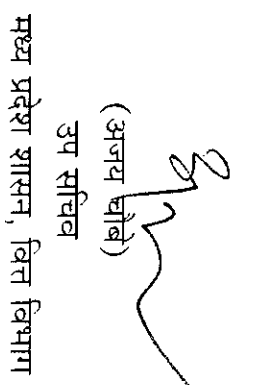 (अजय चौबे)
उप सचिव
मध्य प्रदेश शासन, वित्त विभाग